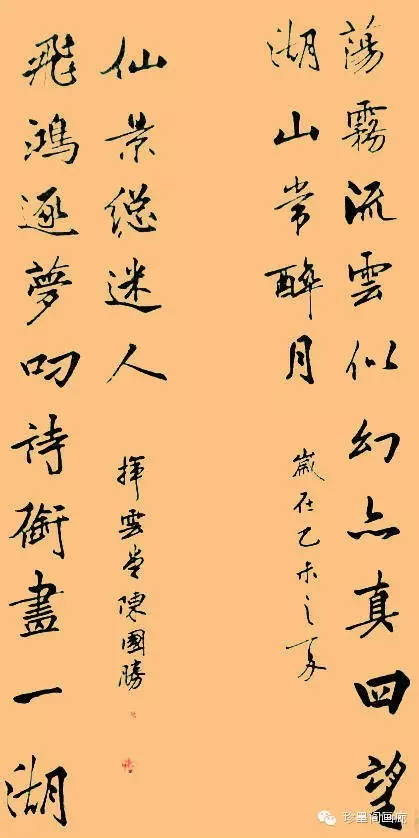 蕩霧流雲似幻亦真四望
湖山常醉月
歲在乙未之夏
飛鴻逐夢叼詩銜畫一湖
仙景總迷人
揮雲堂陳國勝
珍墨阁画廊